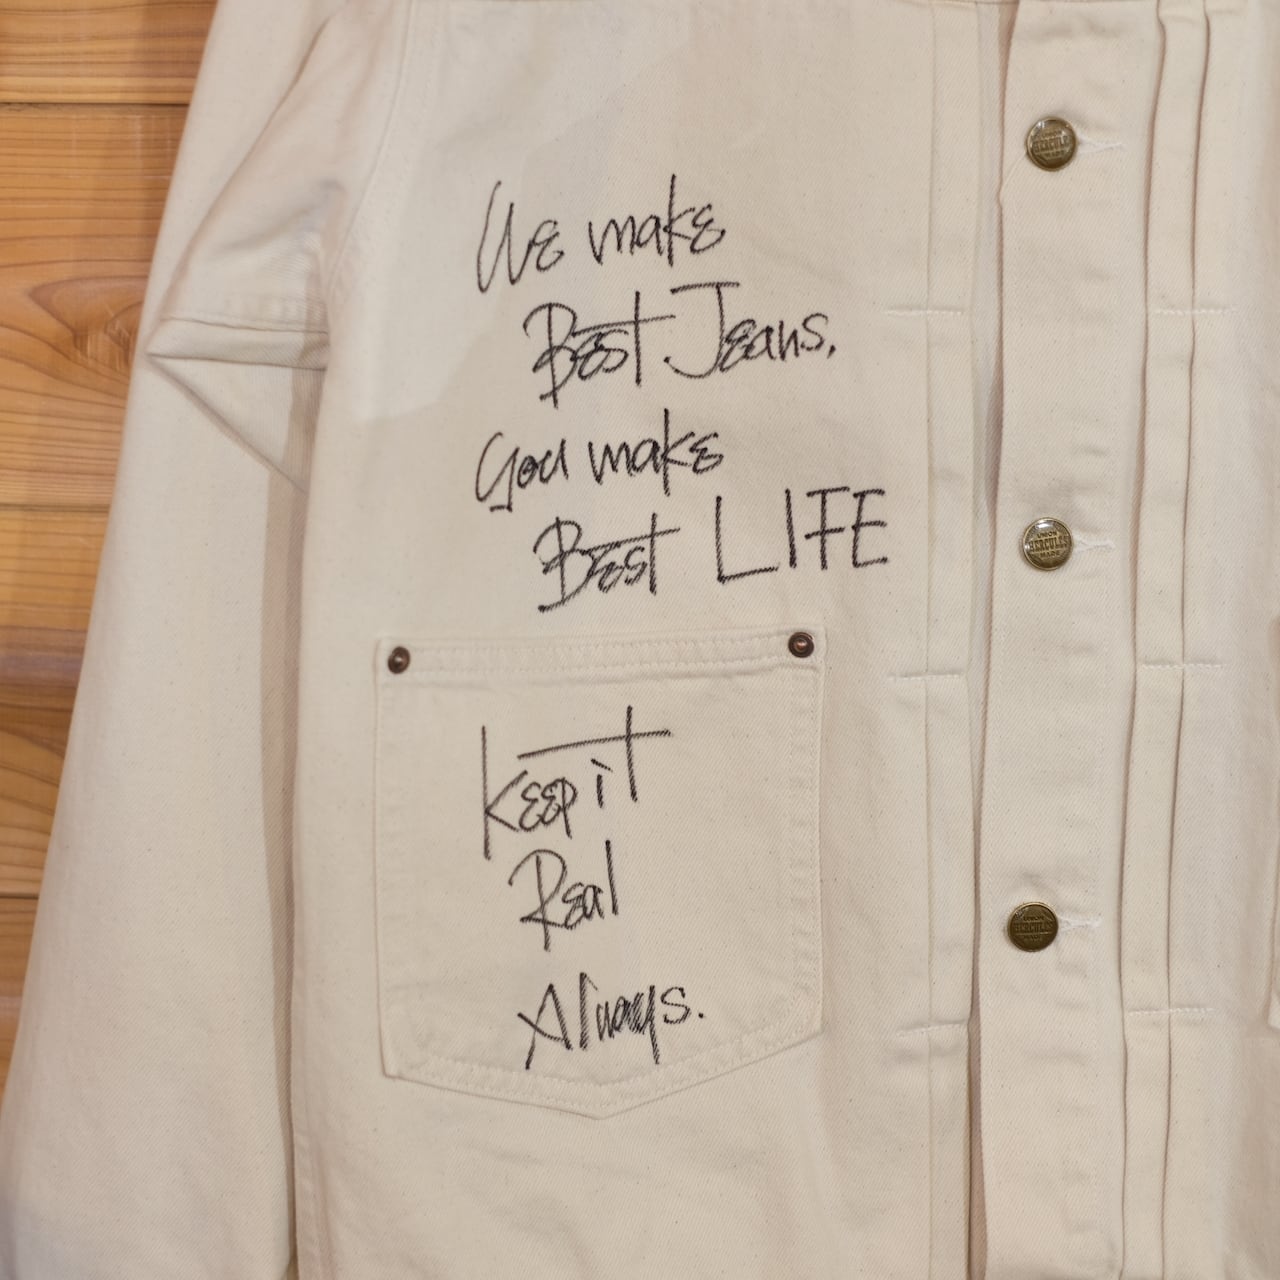 We make
Best Jeans.
You make
Best LIFE
Keep it
Real
Always.
UNION
HERCULES
MADE
UNION
HERCULES
MADE
UNION
HERCULES
MADE